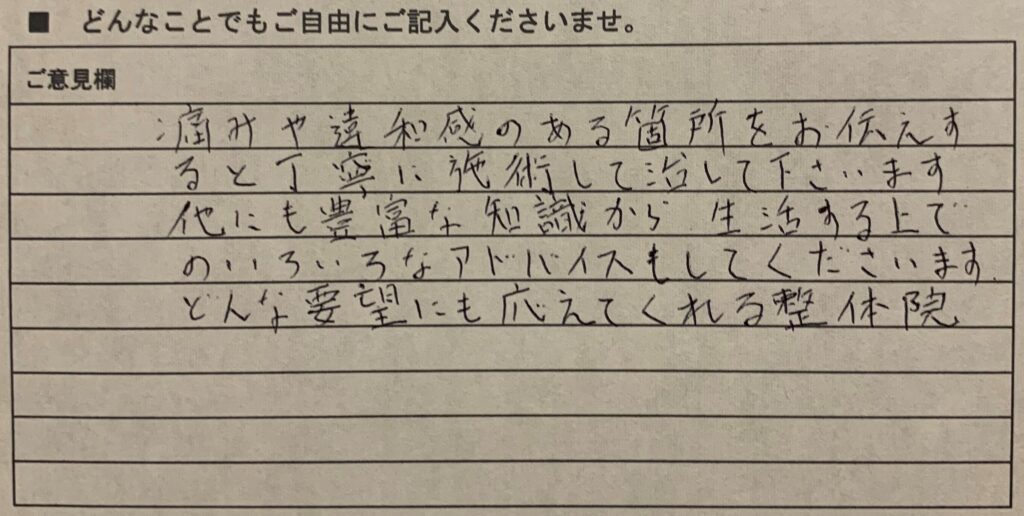 ■ どんなことでもご自由にご記入くださいませ。
ご意見欄
痛みや違和感のある箇所をお伝えす
ると丁寧に施術して治して下さいます
他にも豊富な知識から 生活する上で
のいろいろなアドバイスもしてくださいます.
どんな要望にも応えてくれる整体院